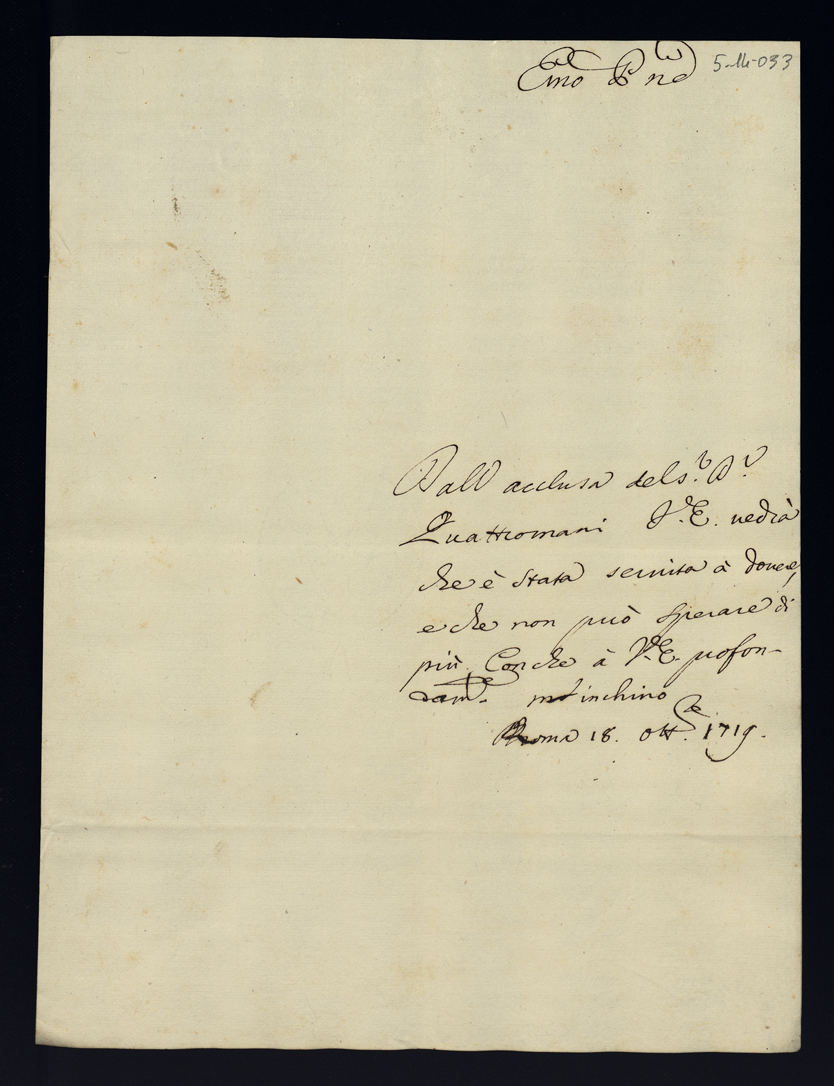 Emo Pne
5-M-033
Dall acclusa del S.r D.r
Quattromani V.E. uedrà
che è stata seruita à douere,
e che non può sperare di
più. Con che à V.E. profon-
dam.te m'inchino
Roma 18. ott.re 1719.